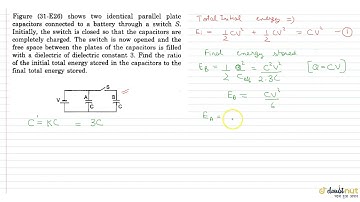 Figure (31-E26) shows two identical parallel plate
capacitors connected to a battery through a switch S.
Initially, the switch is closed so that the capacitors are
completely charged. The switch is now opened and the
free space between the plates of the capacitors is filled
with a dielectric of dielectric constant 3. Find the ratio
of the initial total energy stored in the capacitors to the
final total energy stored.
S
V
A
C
B
C
C' = KC = 3C
Total Initial energy ⇒
Ei = 1/2 CV² + 1/2 CV² = CV² - ①
Final energy stored
E_B = 1/2 Q²/C_eq = C²V²/2·3C [Q=CV]
E_B = CV²/6
E_A =
doubtnut